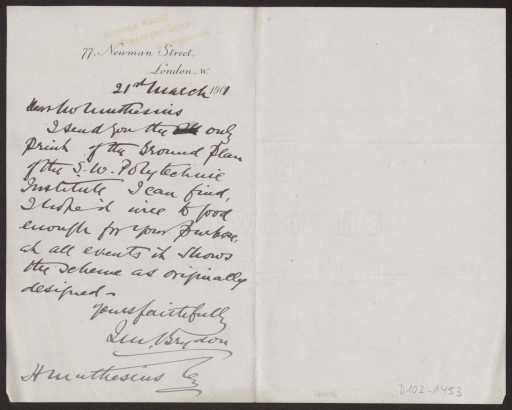 77, Newman Street,
London. W.
21st March 1901
Dear Mr Muthesius
I send you the only
print of the Ground Plan
of the S. W. Polytechnic
Institute I can find,
I hope it will be good
enough for your purpose,
at all events it shows
the scheme as originally
designed –
yours faithfully
J M. Brydon
H Muthesius Esq
D102-1453